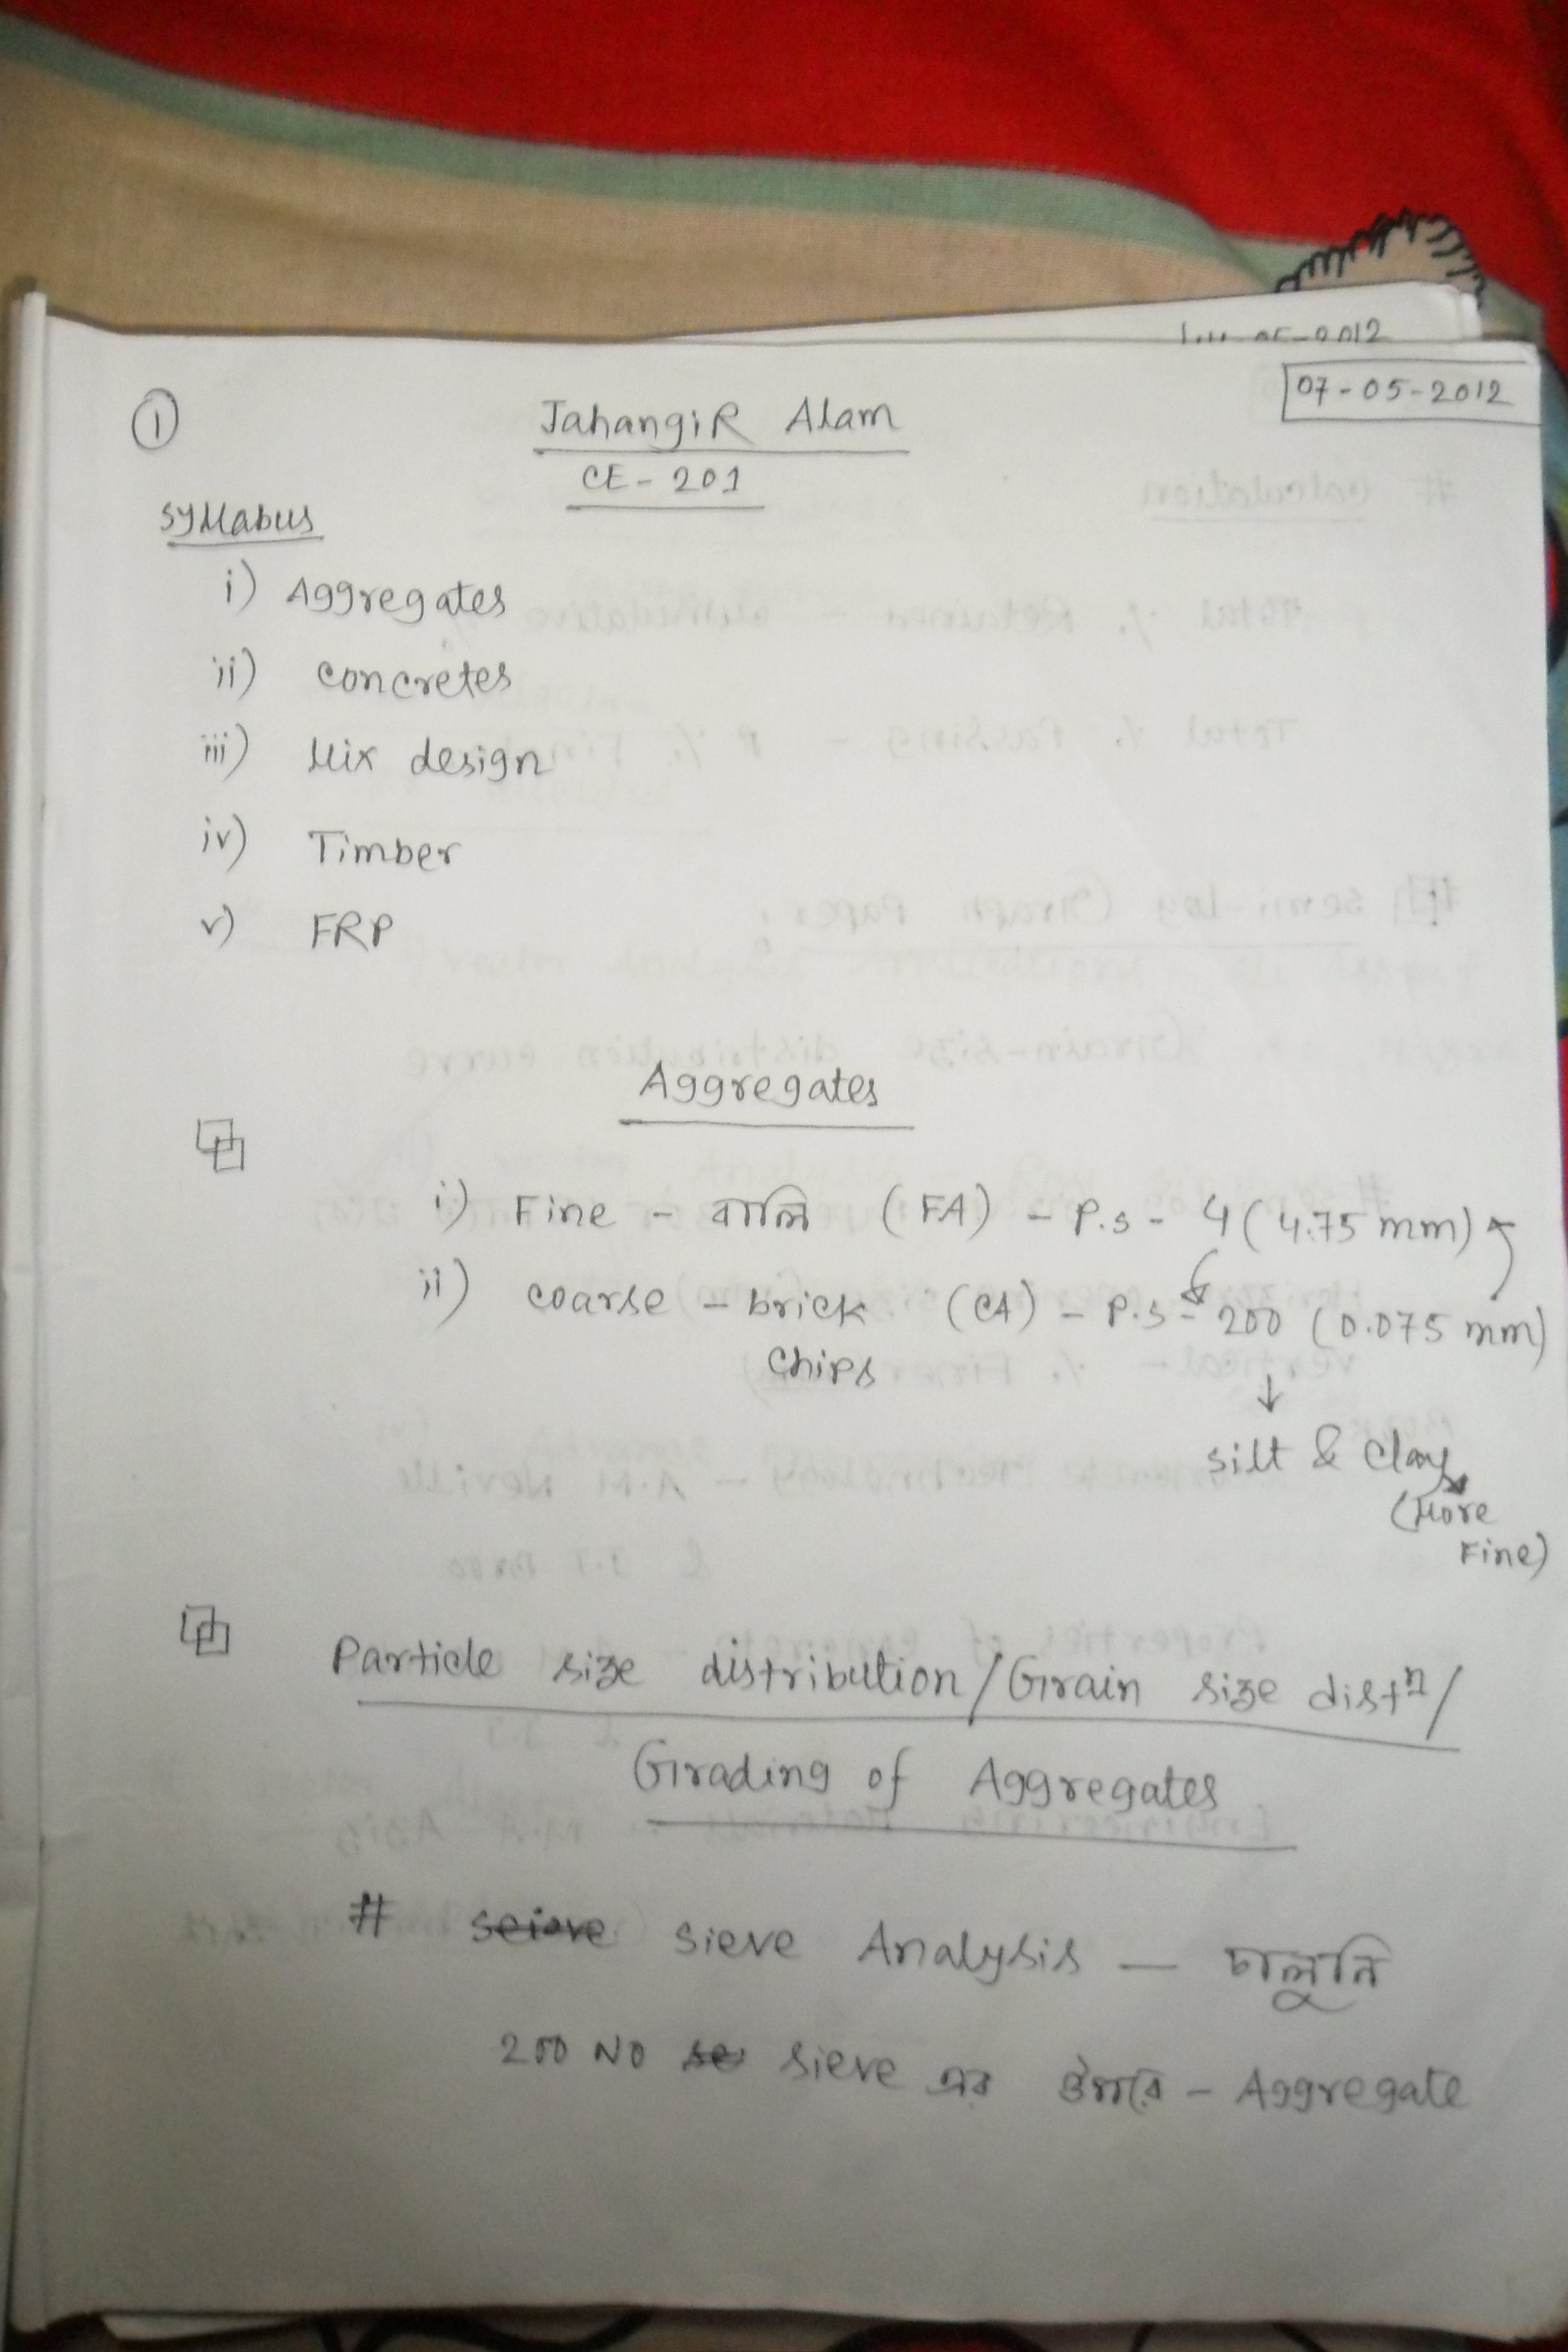 07-05-2012
①
Jahangir Alam
CE-201
Syllabus
i) Aggregates
ii) concretes
iii) Mix design
iv) Timber
v) FRP
Aggregates
i) Fine - বালি (FA) - P.s - 4 (4.75 mm)
ii) coarse - brick (CA) - P.s - 200 (0.075 mm)
chips
↓
silt & clay
(More
Fine)
Particle size distribution/Grain size distⁿ/
Grading of Aggregates
# sieve Analysis — চালুনি
200 No sieve এর উপরে - Aggregate